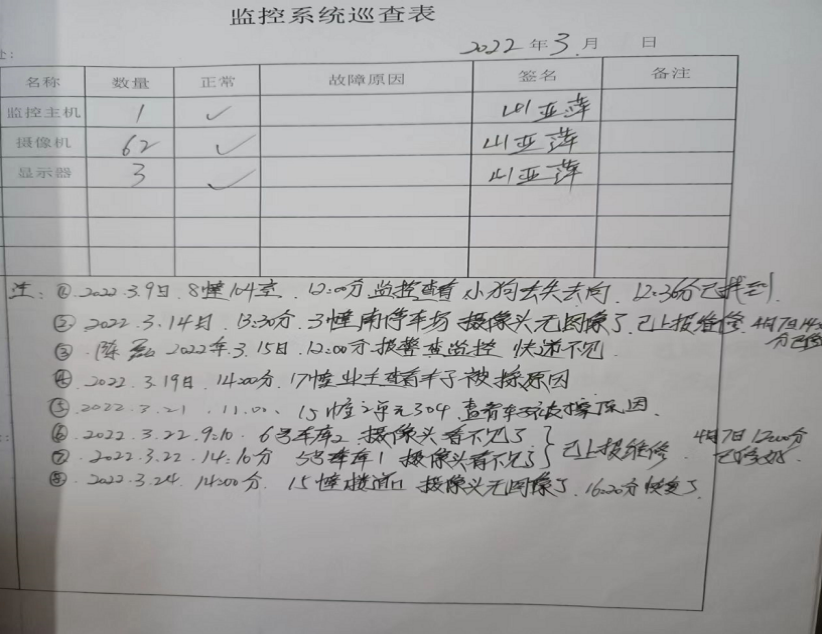 监控系统巡查表
2022年3月 日
名称 数量 正常 故障原因 签名 备注
监控主机 1 ✓ 山亚萍
摄像机 62 ✓ 山亚萍
显示器 3 ✓ 山亚萍
注:① 2022.3.9日.8幢104室.12:00分监控查看小狗丢失去向.12:36分已找到.
② 2022.3.14日.13:30分.3幢南停车场摄像头无图像了.已上报维修 4月7日14:
③ 陈 2022年.3.15日.12:00分报警查监控 快递不见.
④ 2022.3.19日.14:00分.17幢业主查看车子被擦原因
⑤ 2022.3.21.11:00.15幢2单元304查看车子被擦原因.
⑥ 2022.3.22.9:10.6号车库2 摄像头看不见了
⑦ 2022.3.22.14:10分 5号车库1 摄像头看不见了 已上报维修. 4月7日12:00分已修好.
⑧ 2022.3.24.14:00分.15幢楼道1 摄像头无图像了.16:20分恢复了.